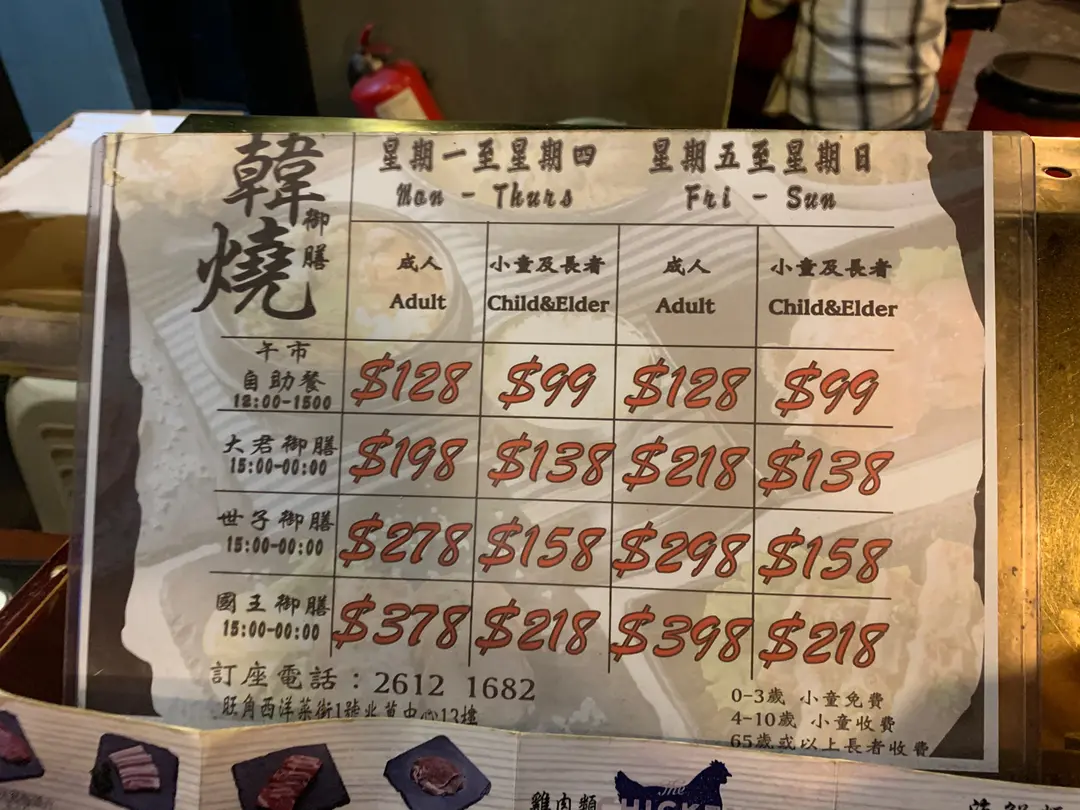 韓燒
御膳
星期一至星期四
Mon - Thurs
星期五至星期日
Fri - Sun
成人
Adult
小童及長者
Child&Elder
成人
Adult
小童及長者
Child&Elder
午市
自助餐
12:00-1500
$128
$99
$128
$99
大君御膳
15:00-00:00
$198
$138
$218
$138
世子御膳
15:00-00:00
$278
$158
$298
$158
國王御膳
15:00-00:00
$378
$218
$398
$218
訂座電話：2612 1682
旺角西洋菜街1號兆萬中心13樓
0-3歲 小童免費
4-10歲 小童收費
65歲或以上長者收費
雞肉類
The